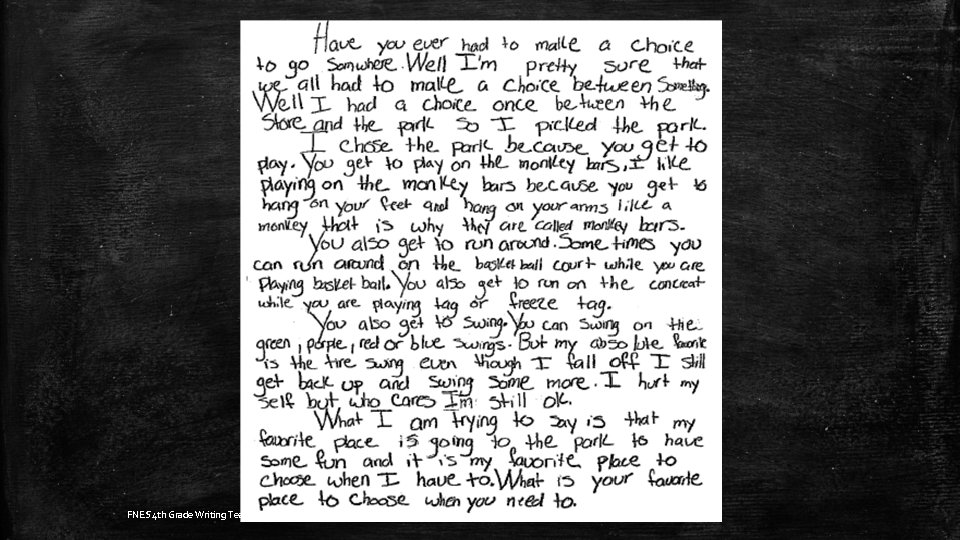 Have you ever had to make a choice
to go Somwhere. Well I'm pretty sure that
we all had to make a choice between Something.
Well I had a choice once between the
Store and the park so I picked the park.
I chose the park because you get to
play. You get to play on the monkey bars, I like
playing on the monkey bars because you get to
hang on your feet and hang on your arms like a
monkey that is why they are called monkey bars.
You also get to run around. Some times you
can run around on the basket ball court while you are
Playing basket ball. You also get to run on the concreat
while you are playing tag or freeze tag.
You also get to Swing. You can Swing on the
green, porple, red or blue swings. But my absolute favorite
is the tire swing even though I fall off I still
get back up and swing some more. I hurt my
self but who cares I'm still ok.
What I am trying to say is that my
favorite place is going to the park to have
some fun and it is my favorite place to
choose when I have to. What is your favorite
place to choose when you need to.
FNES 4th Grade Writing